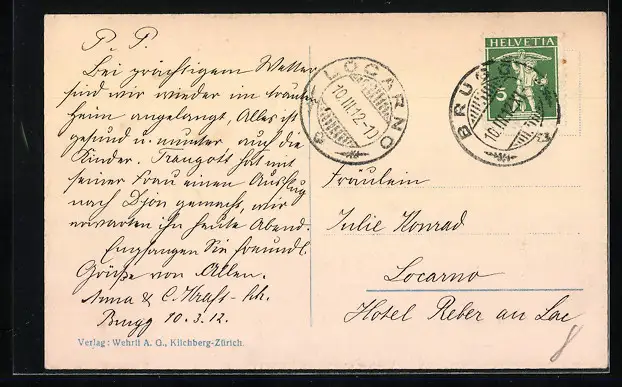 P. P.
Bei prächtigem Wetter
sind wir wieder im trauten
Heim angelangt, Alles ist
gesund u. munter, auch die
Kinder. Traugott hat mit
seiner Frau einen Ausflug
nach Dijon gemacht, wir
erwarten ihn heute Abend.
Empfangen Sie freundl.
Grüße von Allen.
Anna & C.
Brugg 10.3.12.
Verlag: Wehrli A. G., Kilchberg-Zürich.
LOCARNO
10.III.12-10
HELVETIA
5
BRUGG
10.III.12
Fräulein
Julie Konrad
Locarno
Hotel Reber au Lac
8